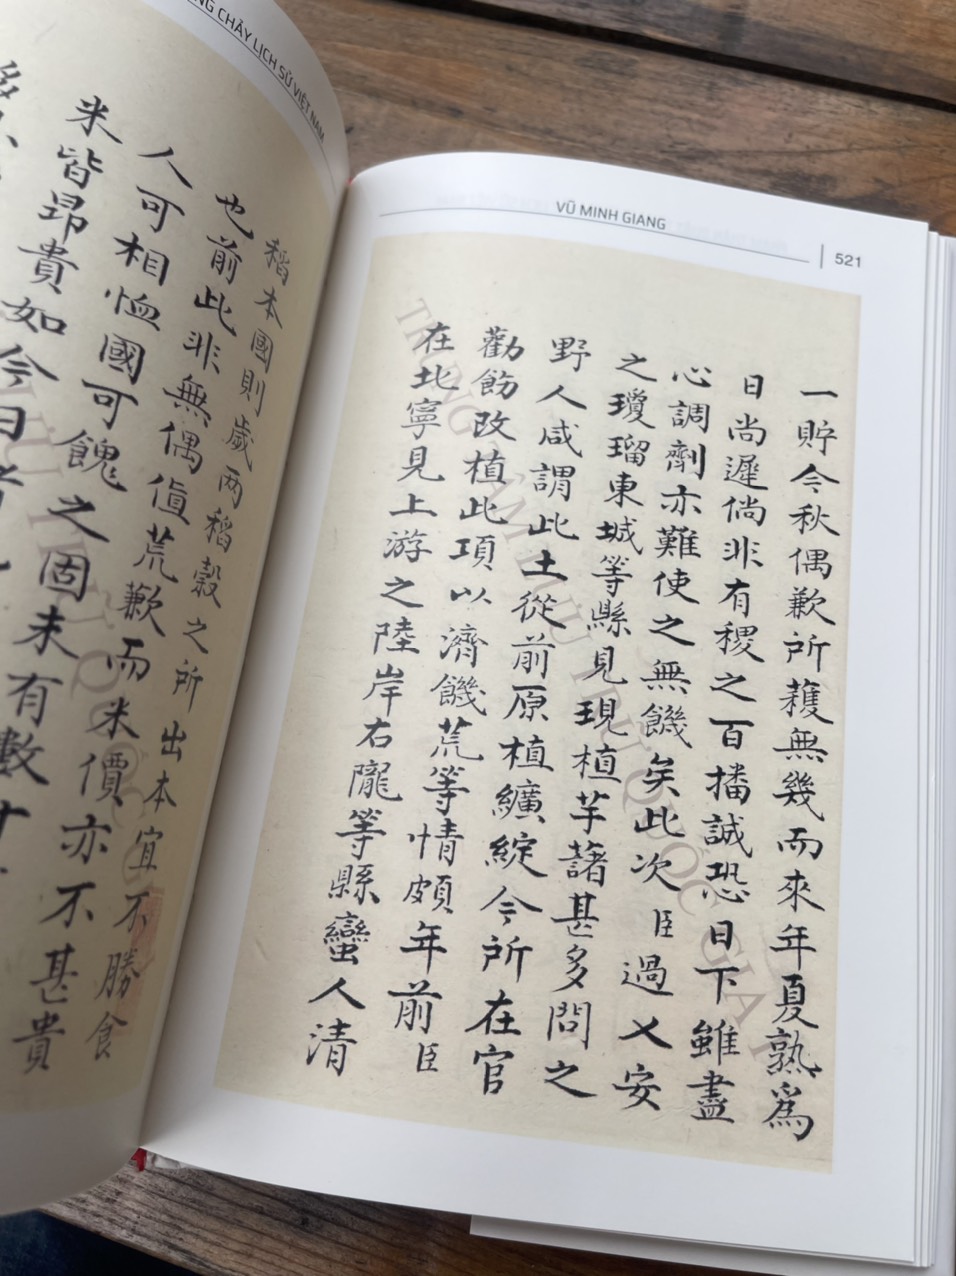 CHẢY LỊCH SỬ VIỆT NAM
稻本國則歲兩稻穀之所出本宜不勝食
也前此非無偶値荒歉而米價亦不甚貴
人可相恤國可餽之固未有數
米皆昂貴如今日者
VŨ MINH GIANG
521
一貯今秋偶歉所穫無幾而來年夏熟爲
日尚遲倘非有稷之百播誠恐日下雖盡
心調劑亦難使之無饑矣此次臣過乂安
之瓊瑠東城等縣見現植芋藷甚多問之
野人咸謂此土從前原植纊綻今所在官
勸飭改植此項以濟饑荒等情頗年前臣
在北寧見上游之陸岸右隴等縣蠻人清
TRUNG TÂM LƯU TRỮ QUỐC GIA I